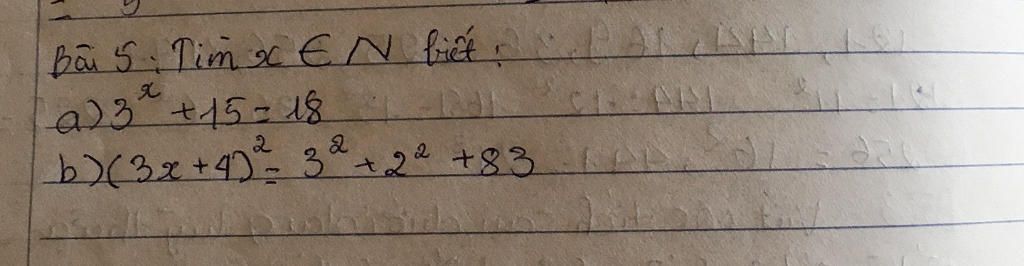 Bài 5: Tìm x ∈ N biết:
a) 3^x + 15 = 18
b) (3x + 4)^2 = 3^2 + 2^2 + 83